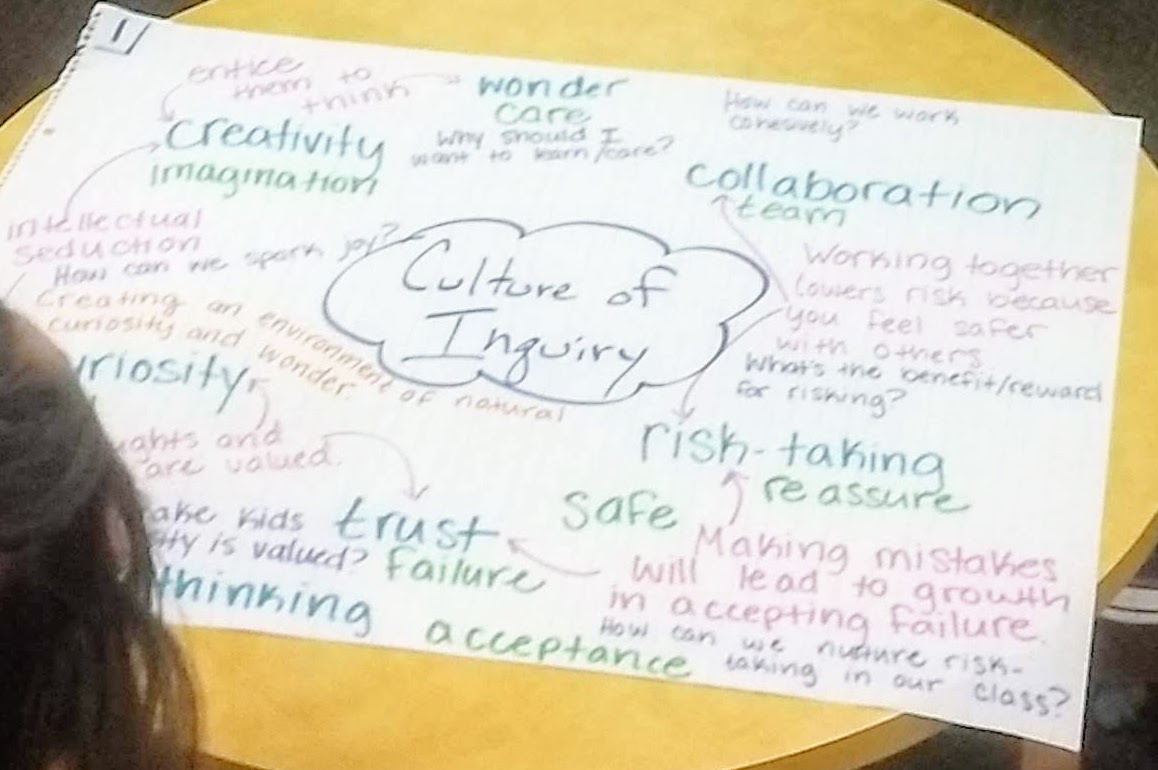 1
entice
them to
think
wonder
care
Why should I
want to learn/care?
How can we work
cohesively?
creativity
imagination
collaboration
team
intellectual
seduction
How can we spark joy?
Culture of
Inquiry
Working together
lowers risk because
you feel safer
with others
What's the benefit/reward
for risking?
Creating an environment of natural
curiosity and wonder.
uriosity
ghts and
are valued.
risk-taking
reassure
safe
ake kids
ity is valued?
trust
failure
thinking
acceptance
Making mistakes
will lead to growth
in accepting failure.
How can we nurture risk-
taking in our class?